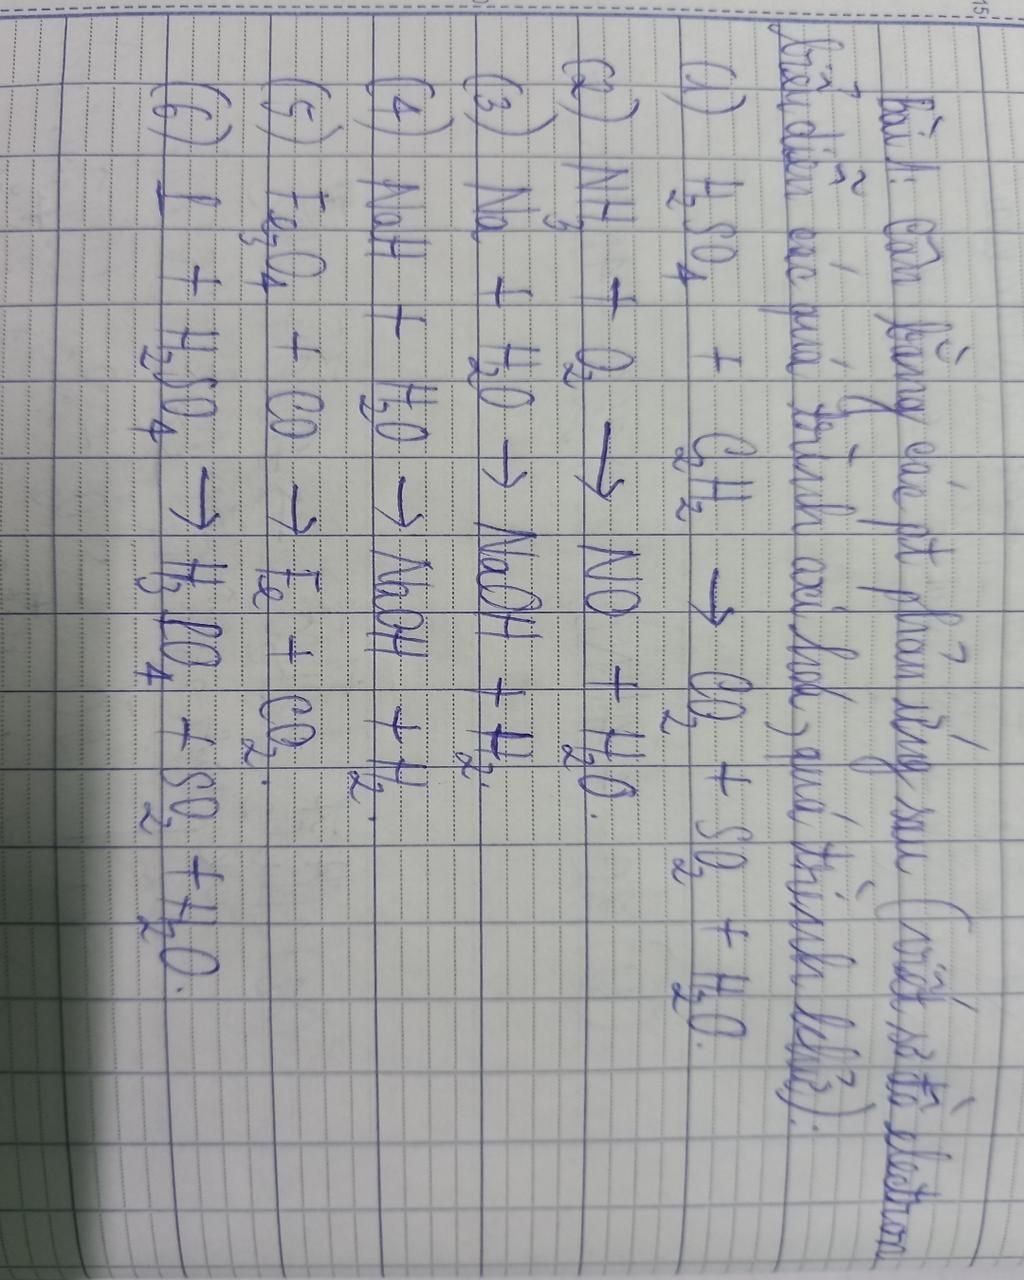 Bài 1: Cân bằng các pt phản ứng sau (viết sơ đồ electron
biểu diễn các quá trình oxi hoá, quá trình khử):
(1) H₂SO₄ + C₂H₂ → CO₂ + SO₂ + H₂O.
(2) NH₃ + O₂ → NO + H₂O.
(3) Na + H₂O → NaOH + H₂.
(4) NaH + H₂O → NaOH + H₂.
(5) Fe₃O₄ + CO → Fe + CO₂.
(6) P + H₂SO₄ → H₃PO₄ + SO₂ + H₂O.
15